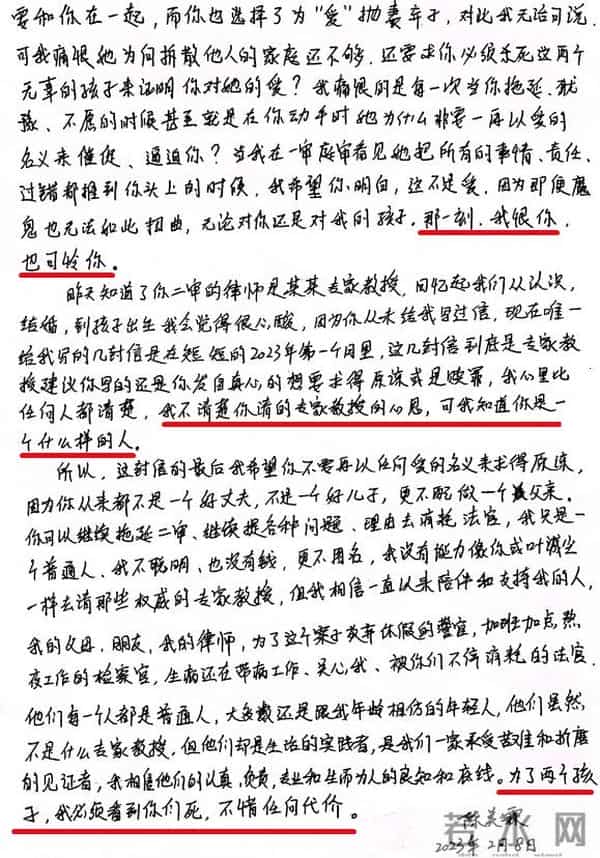 要和你在一起，而你也选择了为“爱”抛妻弃子，对此我无话可说．
可我痛恨她为何拆散他人的家庭还不够．还要求你必须杀死这两个
无辜的孩子来证明你对她的爱？我痛恨的是每一次当你拖延、犹
豫、不愿的时候甚至就是在你动手时她为什么非要一再以爱的
名义来催促、逼迫你？当我在一审庭审看见她把所有的事情、责任、
过错都推到你头上的时候，我希望你明白，这不是爱．因为即便魔
鬼也无法如此扭曲，无论对你还是对我的孩子，那一刻．我恨你，
也可怜你。
昨天知道了你二审的律师是某某专家教授，回忆起我们从认识，
结婚，到孩子出生我会觉得很心酸，因为你从未给我写过信，现在唯一
给我写的几封信是在短短的2023年第一个月里，这几封信到底是专家教
授建议你写的还是你发自真心的想要求得原谅或是赎罪，我心里比
任何人都清楚，我不清楚你请的专家教授的心思，可我知道你是一
个什么样的人。
所以，这封信的最后我希望你不要再以任何爱的名义来求得原谅，
因为你从来都不是一个好丈夫，不是一个好儿子，更不配做一个父亲。
你可以继续拖延二审、继续提各种问题、理由去消耗法官，我只是一
个普通人、我不聪明、也没有钱，更不用名，我没有能力像你或叶诚尘
一样去请那些权威的专家教授，但我相信一直以来陪伴和支持我的人，
我的父母，朋友，我的律师，为了这个案子放弃休假的警官，加班加点熬
夜工作的检察官，生病还在带病工作、关心我、被你们不停消耗的法官．
他们每一个人都是普通人，大多数还是跟我年龄相仿的年轻人，他们虽然
不是什么专家教授，但他们却是生活的实践者，是我们一家承受苦难和折磨
的见证者，我相信他们的认真，负责，专业和生而为人的良知和底线。为了两个孩
子，我必须看到你们死，不惜任何代价。
陈美霖
2023年2月8日
若水网